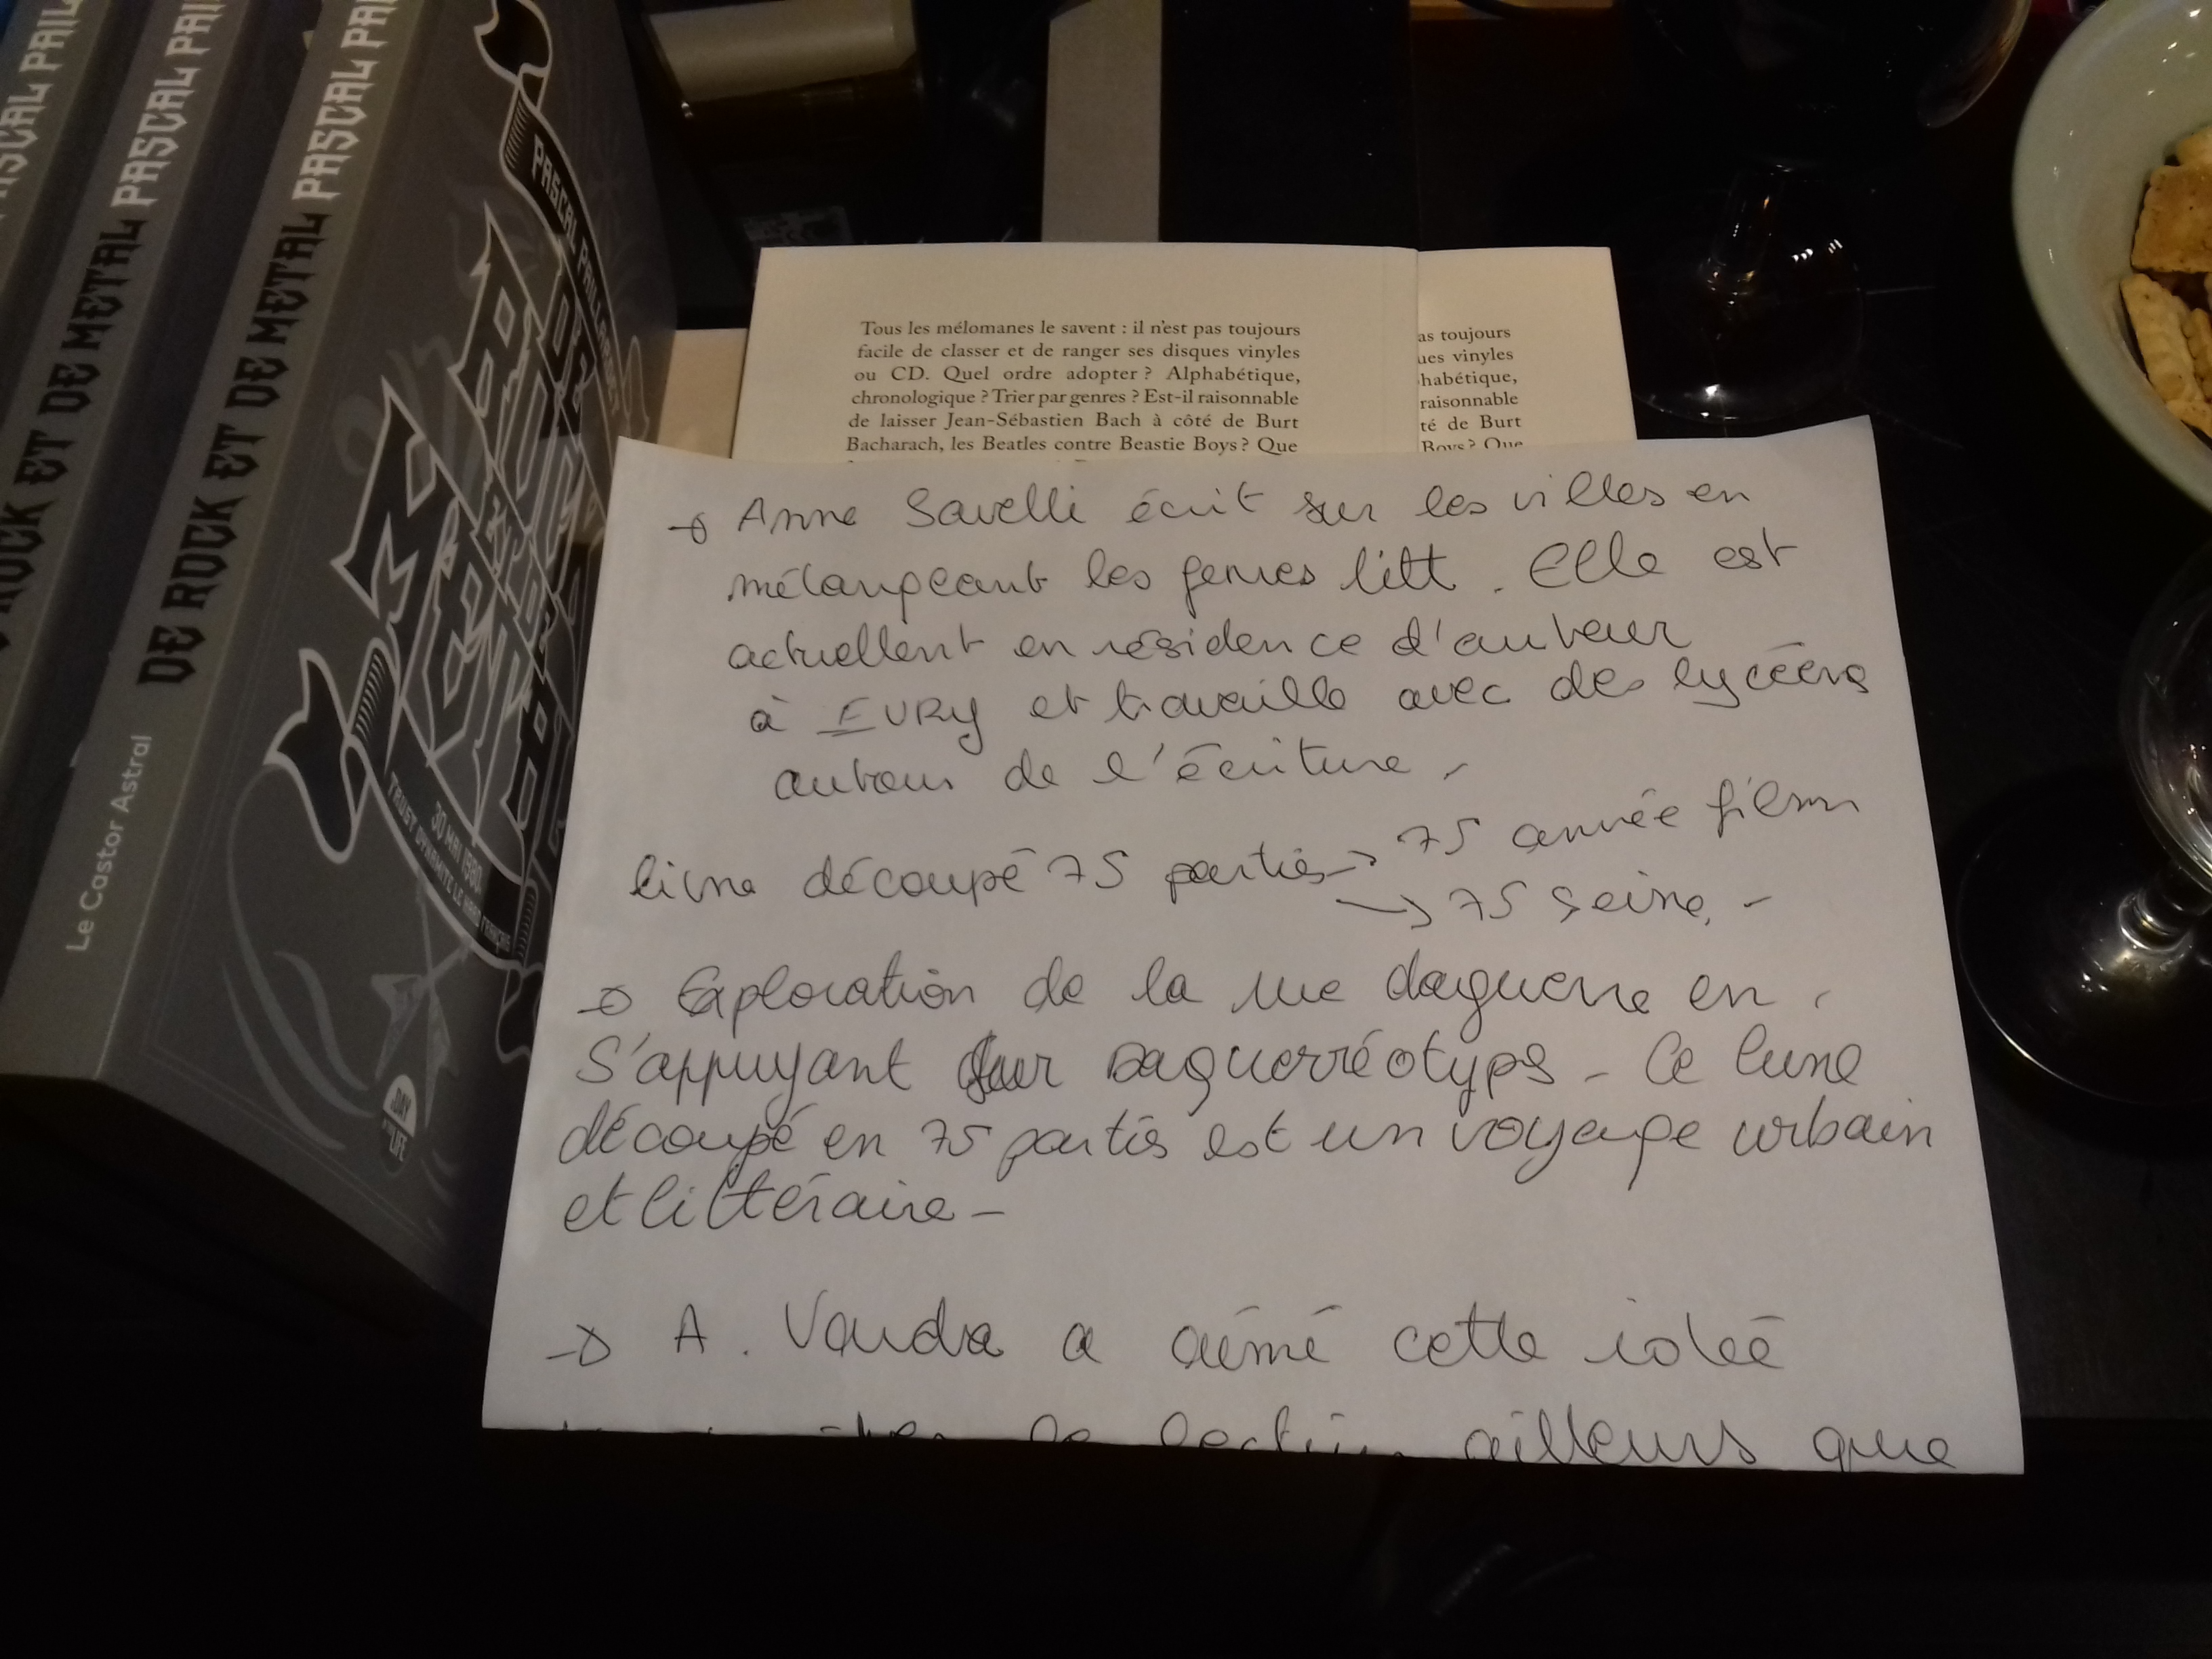 PASCAL PAIL
ROCK ET DE METAL PASCAL PAI
DE ROCK ET DE METAL PASCAL PAI
Le Castor Astral
PASCAL PAILLARDET
30 MAI 1980,
TRUST DYNAMITE LE HARD FRANÇAIS
A DAY IN THE LIFE
Tous les mélomanes le savent : il n'est pas toujours
facile de classer et de ranger ses disques vinyles
ou CD. Quel ordre adopter ? Alphabétique,
chronologique ? Trier par genres ? Est-il raisonnable
de laisser Jean-Sébastien Bach à côté de Burt
Bacharach, les Beatles contre Beastie Boys ? Que
as toujours
ues vinyles
habétique,
raisonnable
té de Burt
Boys ? Que
→ Anne Savelli écrit sur les villes en
mélangeant les genres litt. Elle est
actuellent en résidence d'auteur
à EVRY et travaille avec des lycéens
autour de l'écriture.
livre découpé 75 parties → 75 année film
→ 75 Seine. -
→ Exploration de la rue daguerre en
s'appuyant sur Daguerréotyps - Ce livre
découpé en 75 partis est un voyage urbain
et littéraire -
→ A. Varda a aimé cette idée
ailleurs que